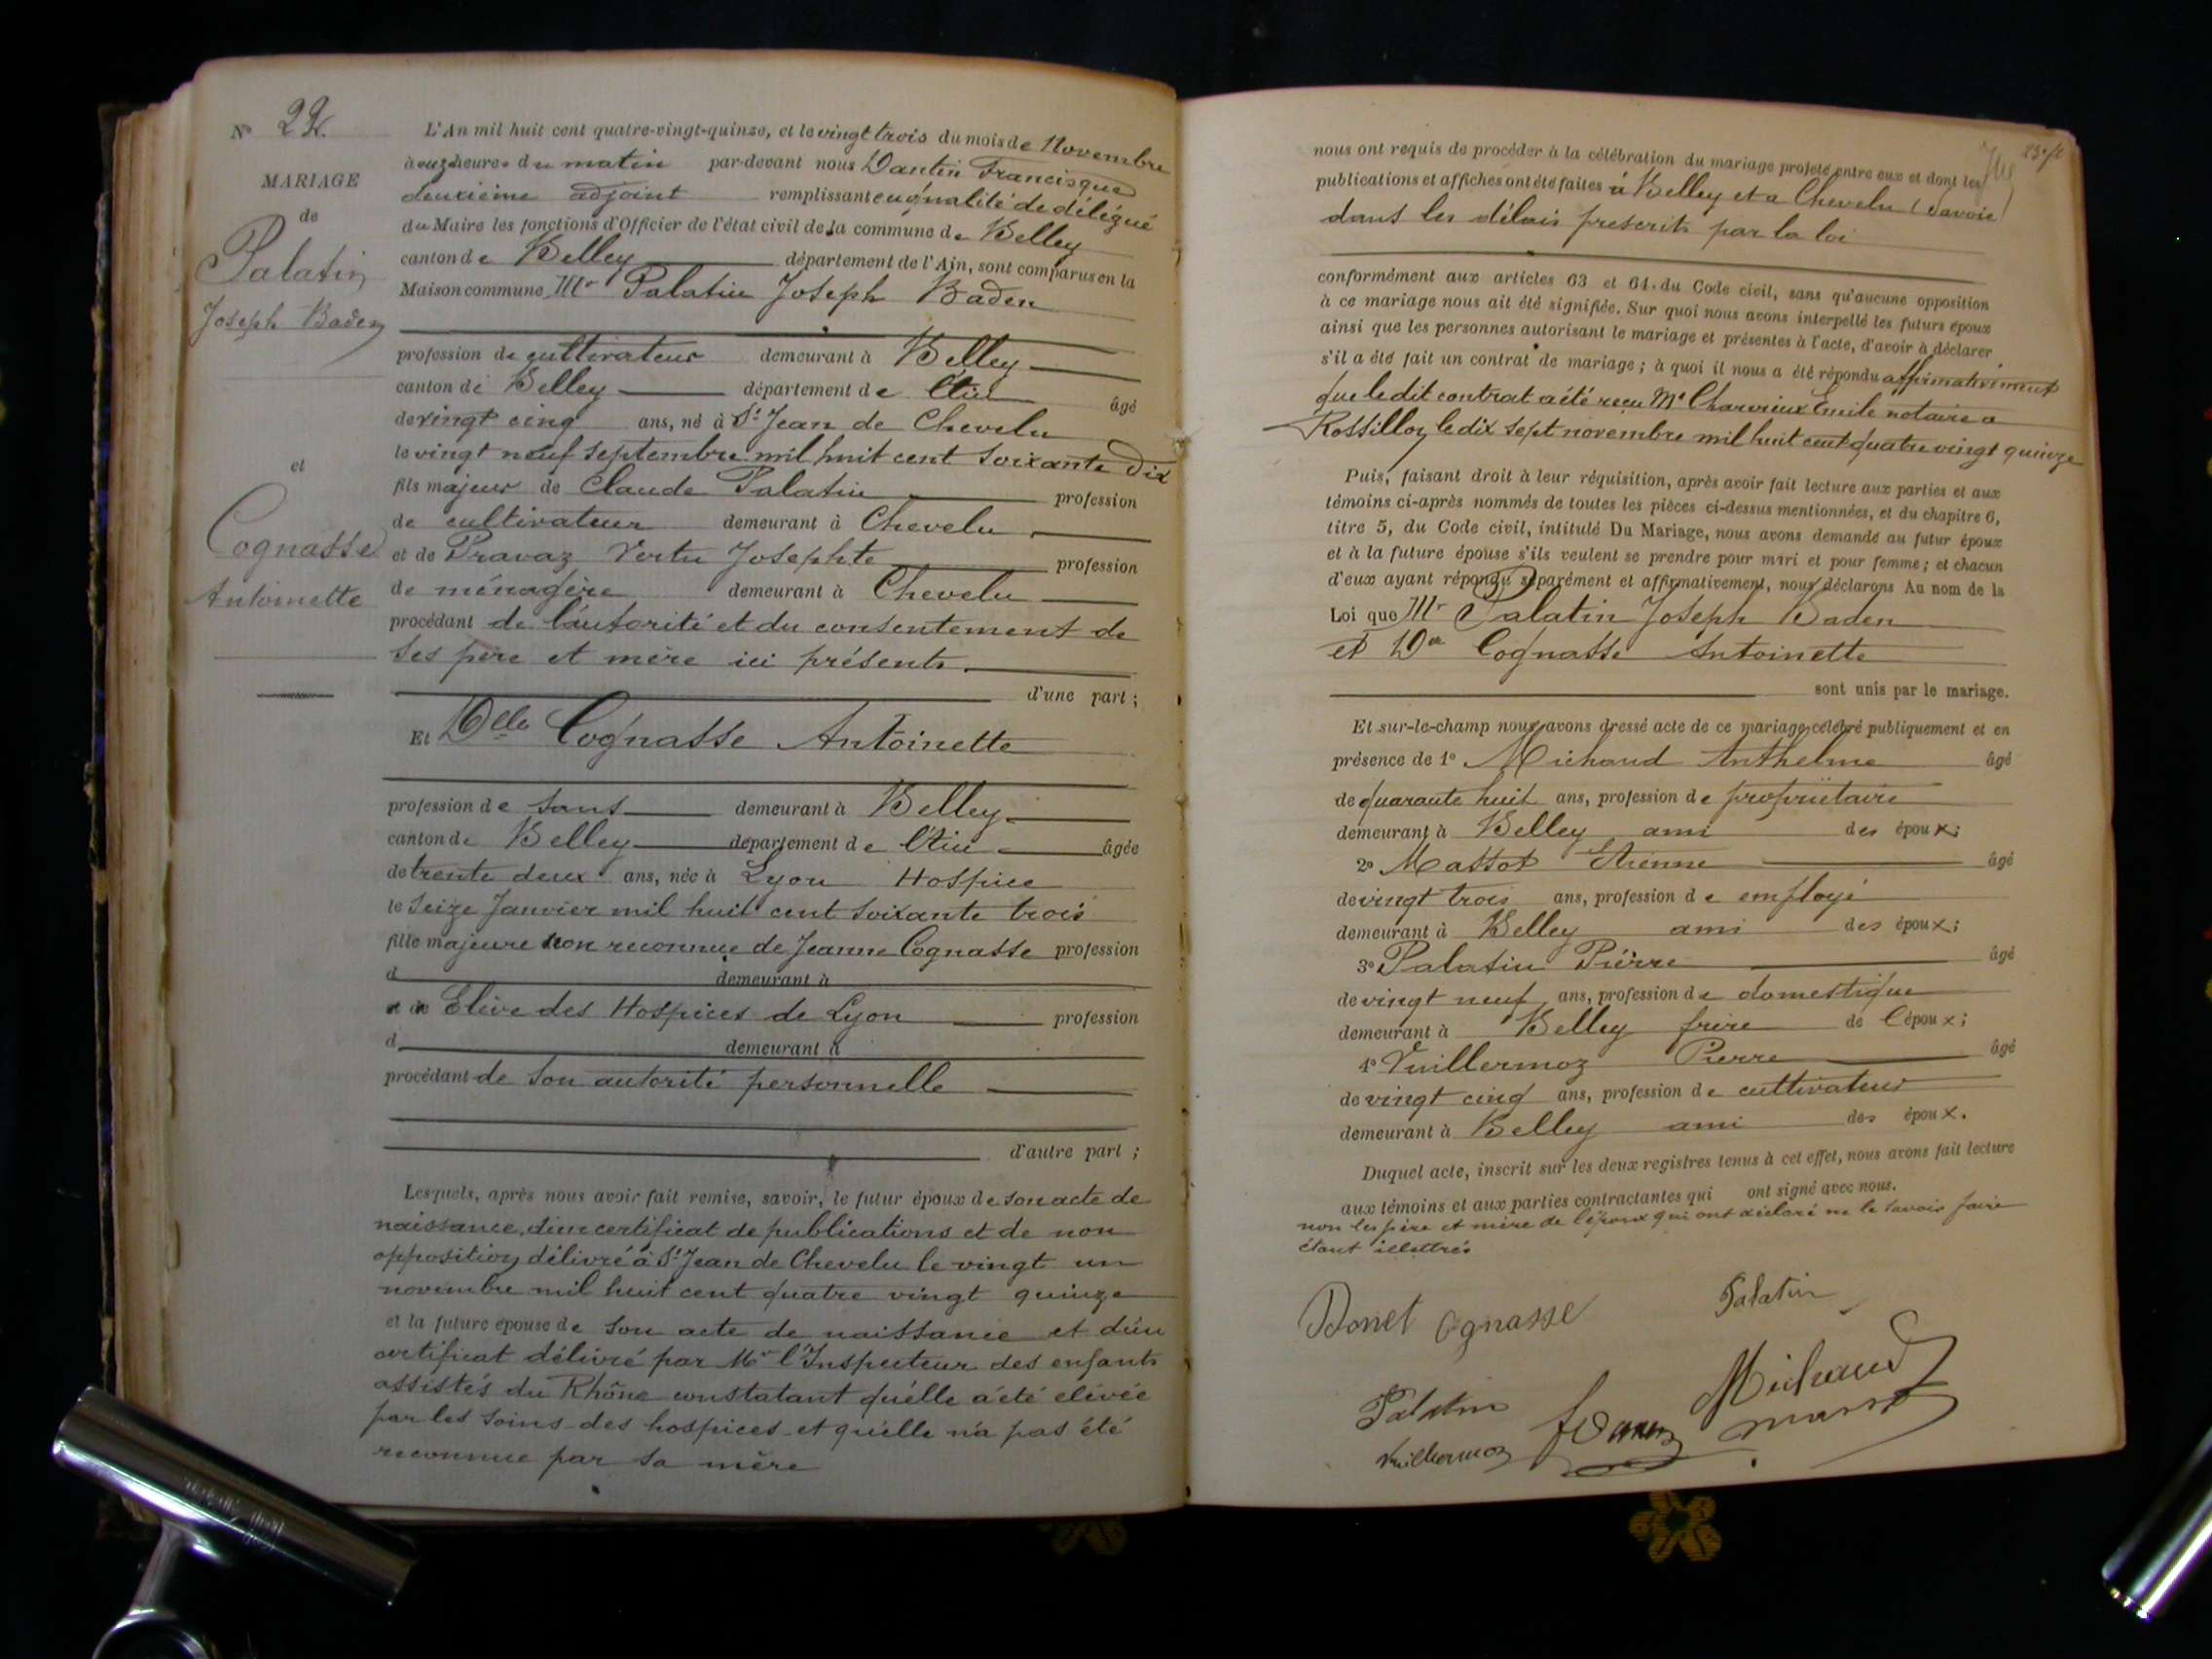 N° 22.
MARIAGE
de
Palatin
Joseph Baden
et
Cognasse
Antoinette
L'An mil huit cent quatre-vingt-quinze, et le vingt trois du mois de Novembre
à onze heures du matin par-devant nous Dantin Francisque
deuxième adjoint remplissant en qualité de délégué
du Maire les fonctions d'Officier de l'état civil de la commune de Belley
canton de Belley département de l'Ain, sont comparus en la
Maison commune Mr Palatin Joseph Baden
profession de cultivateur demeurant à Belley
canton de Belley département de l'Ain âgé
de vingt cinq ans, né à St Jean de Chevelu
le vingt neuf septembre mil huit cent soixante dix
fils majeur de Claude Palatin profession
de cultivateur demeurant à Chevelu
et de Pravaz Vertu Josephte profession
de ménagère demeurant à Chevelu
procédant de l'autorité et du consentement de
ses père et mère ici présents.
d'une part ;
Et Delle Cognasse Antoinette
profession de sans demeurant à Belley
canton de Belley département de l'Ain âgée
de trente deux ans, née à Lyon Hospice
le seize Janvier mil huit cent soixante trois
fille majeure non reconnue de Jeanne Cognasse profession
d demeurant à
Elève des Hospices de Lyon profession
d demeurant à
procédant de son autorité personnelle
d'autre part ;
Lesquels, après nous avoir fait remise, savoir, le futur époux de son acte de
naissance, d'un certificat de publications et de non
opposition délivré à St Jean de Chevelu le vingt un
novembre mil huit cent quatre vingt quinze
et la future épouse de son acte de naissance et d'un
certificat délivré par Mr l'Inspecteur des enfants
assistés du Rhône constatant qu'elle a été elévée
par les soins des hospices et qu'elle n'a pas été
reconnue par sa mère
nous ont requis de procéder à la célébration du mariage projeté entre eux et dont les
publications et affiches ont été faites à Belley et a Chevelu (Savoie)
dans les délais prescrits par la loi
conformément aux articles 63 et 64 du Code civil, sans qu'aucune opposition
à ce mariage nous ait été signifiée. Sur quoi nous avons interpellé les futurs époux
ainsi que les personnes autorisant le mariage et présentes à l'acte, d'avoir à déclarer
s'il a été fait un contrat de mariage ; à quoi il nous a été répondu affirmativement
que le dit contrat a été reçu Me Charvieux Emile notaire a
Rossillon le dix sept novembre mil huit cent quatre vingt quinze
Puis, faisant droit à leur réquisition, après avoir fait lecture aux parties et aux
témoins ci-après nommés de toutes les pièces ci-dessus mentionnées, et du chapitre 6,
titre 5, du Code civil, intitulé Du Mariage, nous avons demandé au futur époux
et à la future épouse s'ils veulent se prendre pour mari et pour femme ; et chacun
d'eux ayant répondu séparément et affirmativement, nous déclarons Au nom de la
Loi que Mr Palatin Joseph Baden
et Dlle Cognasse Antoinette
sont unis par le mariage.
Et sur-le-champ nous avons dressé acte de ce mariage célébré publiquement et en
présence de 1° Michaud Anthelme âgé
de quarante huit ans, profession de propriétaire
demeurant à Belley ami des époux;
2° Massot Etienne âgé
de vingt trois ans, profession de employé
demeurant à Belley ami des époux;
3° Palatin Pierre âgé
de vingt neuf ans, profession de domestique
demeurant à Belley frère de l'époux;
4° Vuillermoz Pierre âgé
de vingt cinq ans, profession de cultivateur
demeurant à Belley ami des époux.
Duquel acte, inscrit sur les deux registres tenus à cet effet, nous avons fait lecture
aux témoins et aux parties contractantes qui ont signé avec nous.
non les père et mère de l'époux qui ont déclaré ne le savoir faire
étant illettrés
Palatin
Michaud
Palatin
Massot
Vuillermoz